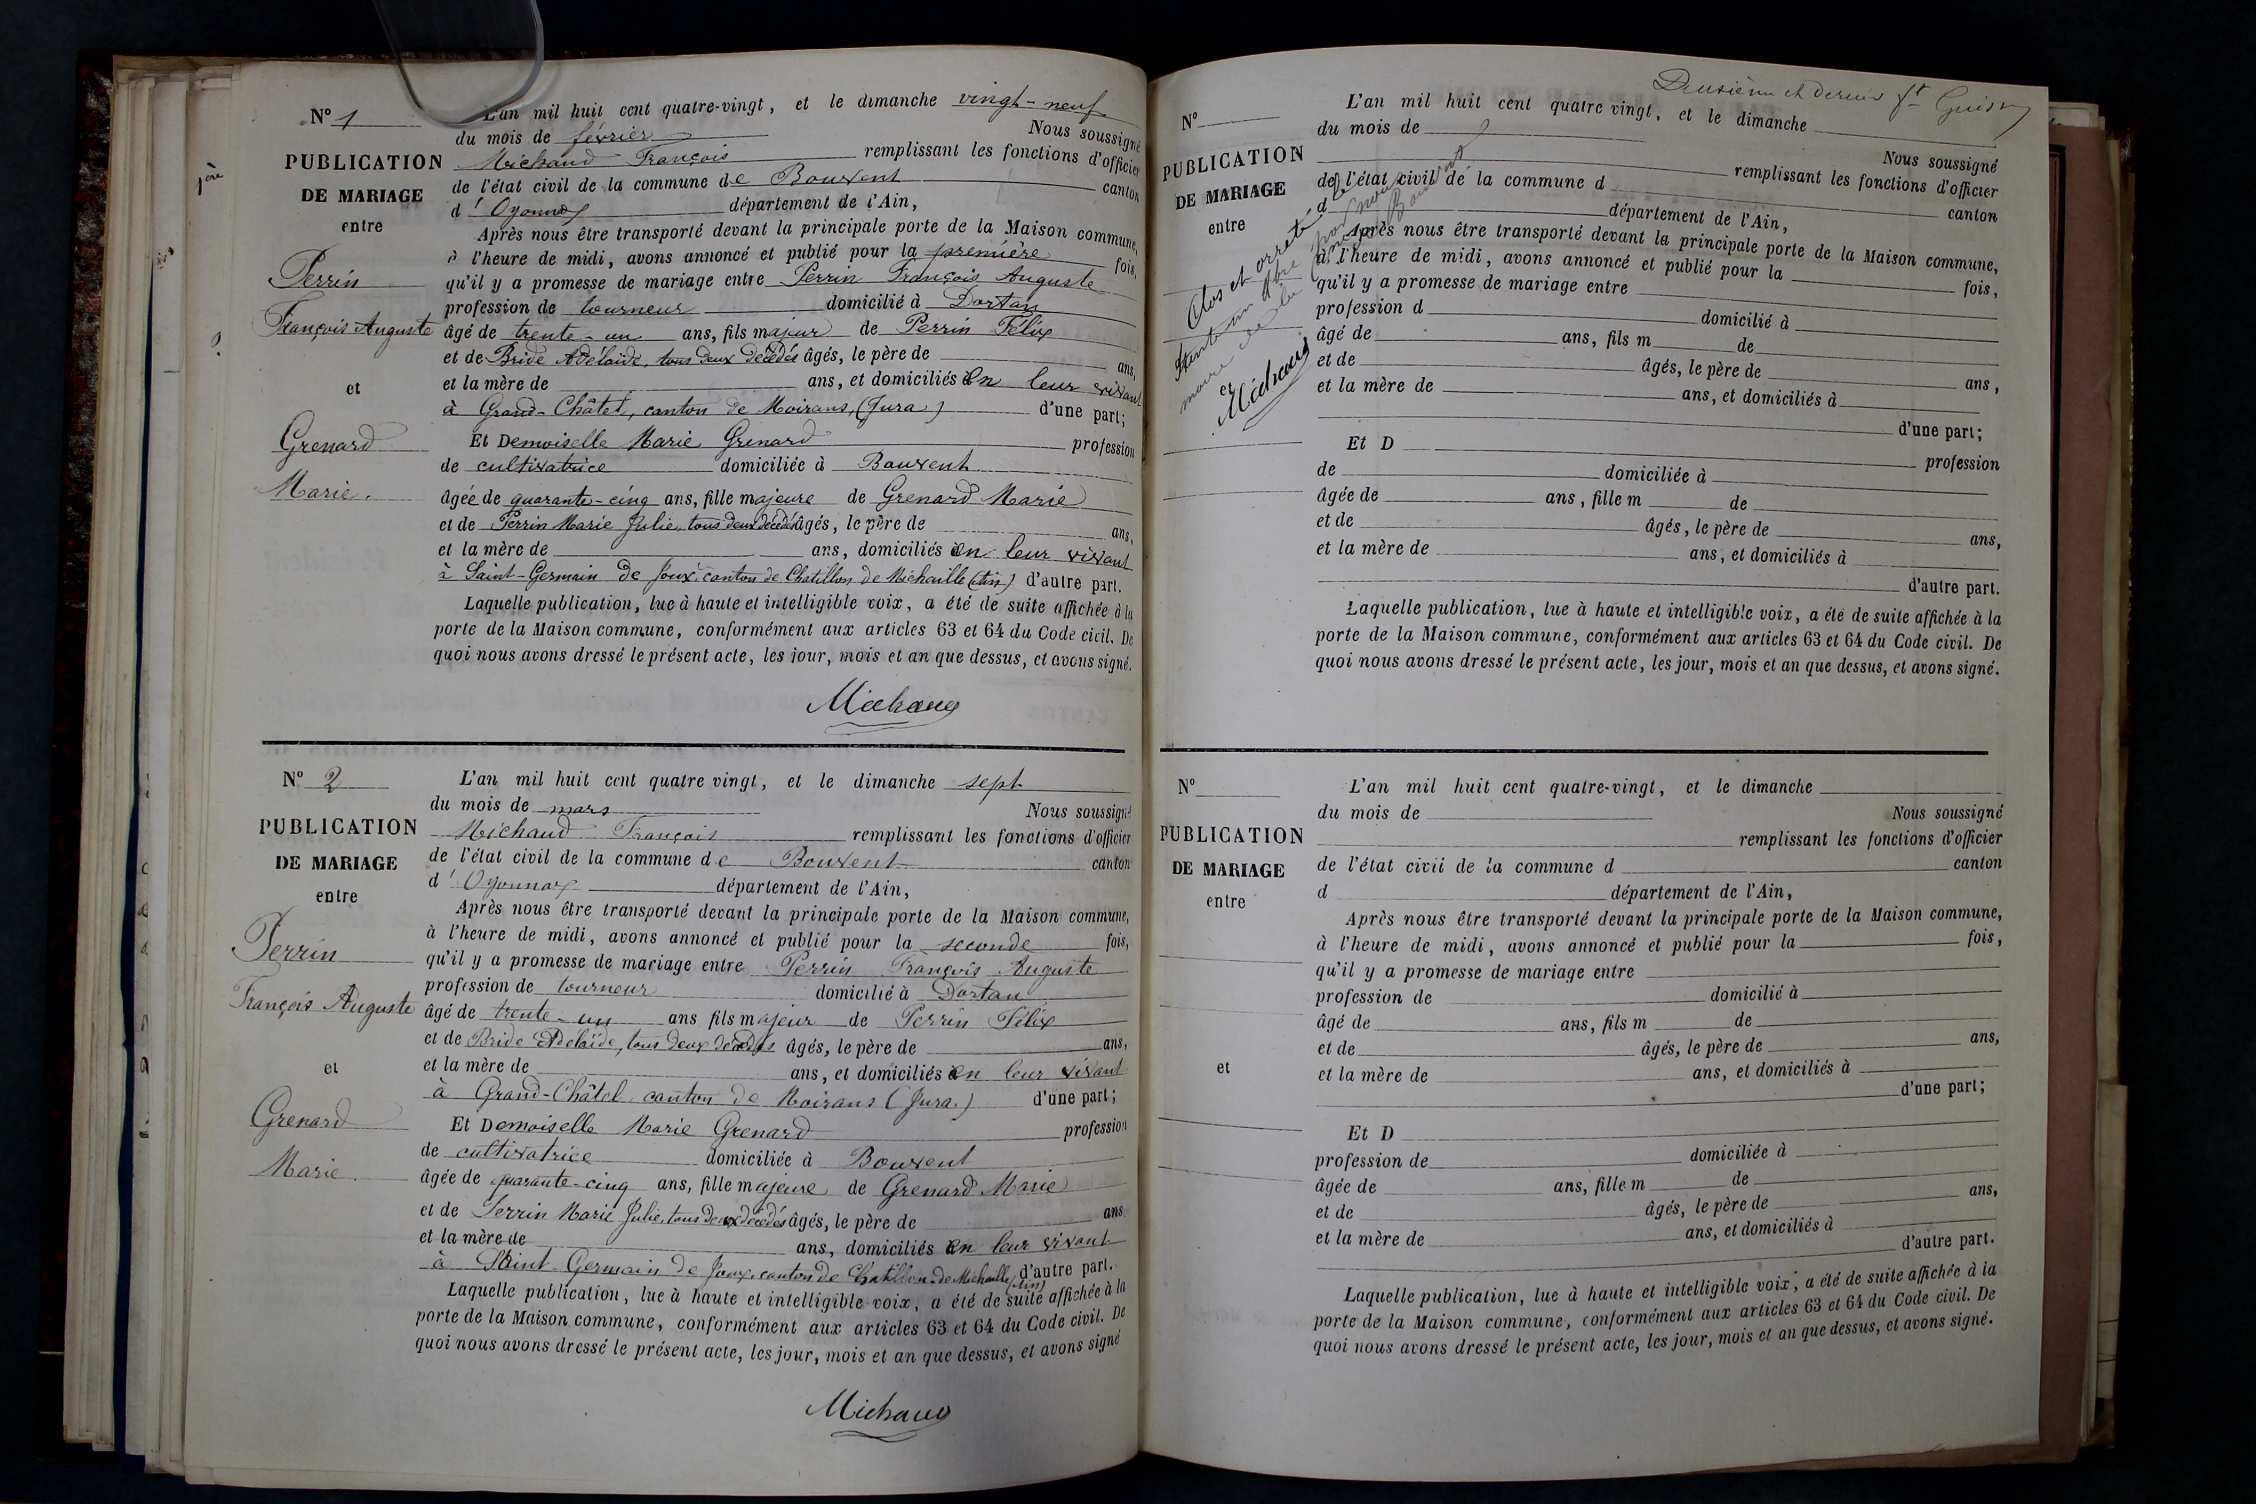 N° 1
PUBLICATION
DE MARIAGE
entre
Perrin
François Auguste
et
Grenard
Marie.
L'an mil huit cent quatre-vingt, et le dimanche vingt-neuf
du mois de février Nous soussigné
Michaud François remplissant les fonctions d'officier
de l'état civil de la commune de Bouvent canton
d'Oyonnax département de l'Ain,
Après nous être transporté devant la principale porte de la Maison commune,
à l'heure de midi, avons annoncé et publié pour la première fois,
qu'il y a promesse de mariage entre Perrin François Auguste
profession de tourneur domicilié à Dortan
âgé de trente-un ans, fils majeur de Perrin Félix
et de Bride Adélaïde, tous deux décédés âgés, le père de ans,
et la mère de ans, et domiciliés en leur vivant
à Grand-Châtel, canton de Moirans, (Jura) d'une part;
Et Demoiselle Marie Grenard profession
de cultivatrice domiciliée à Bouvent
âgée de quarante-cinq ans, fille majeure de Grenard Marie
et de Perrin Marie Julie, tous deux décédés âgés, le père de ans,
et la mère de ans, domiciliés en leur vivant
à Saint-Germain de Joux, canton de Chatillon de Michaille (Ain) d'autre part.
Laquelle publication, lue à haute et intelligible voix, a été de suite affichée à la
porte de la Maison commune, conformément aux articles 63 et 64 du Code civil. De
quoi nous avons dressé le présent acte, les jour, mois et an que dessus, et avons signé.
Michaud
N° 2
PUBLICATION
DE MARIAGE
entre
Perrin
François Auguste
et
Grenard
Marie.
L'an mil huit cent quatre vingt, et le dimanche sept
du mois de mars Nous soussigné
Michaud François remplissant les fonctions d'officier
de l'état civil de la commune de Bouvent canton
d'Oyonnax département de l'Ain,
Après nous être transporté devant la principale porte de la Maison commune,
à l'heure de midi, avons annoncé et publié pour la seconde fois,
qu'il y a promesse de mariage entre Perrin François Auguste
profession de tourneur domicilié à Dortan
âgé de trente-un ans fils majeur de Perrin Félix
et de Bride Adelaïde, tous deux décédés âgés, le père de ans,
et la mère de ans, et domiciliés en leur vivant
à Grand-Châtel canton de Moirans (Jura.) d'une part;
Et Demoiselle Marie Grenard profession
de cultivatrice domiciliée à Bouvent
âgée de quarante-cinq ans, fille majeure de Grenard Marie
et de Perrin Marie Julie, tous deux décédés âgés, le père de ans
et la mère de ans, domiciliés en leur vivant
à Saint-Germain de Joux, canton de Chatillon-de-Michaille (Ain) d'autre part.
Laquelle publication, lue à haute et intelligible voix, a été de suite affichée à la
porte de la Maison commune, conformément aux articles 63 et 64 du Code civil. De
quoi nous avons dressé le présent acte, les jour, mois et an que dessus, et avons signé
Michaud
Deuxième et dernier
N°
PUBLICATION
DE MARIAGE
entre
Clos et arreté
par nous
maire de
Bouvent
Michaud
L'an mil huit cent quatre vingt, et le dimanche
du mois de Nous soussigné
remplissant les fonctions d'officier
de l'état civil de la commune d canton
d département de l'Ain,
Après nous être transporté devant la principale porte de la Maison commune,
à l'heure de midi, avons annoncé et publié pour la fois,
qu'il y a promesse de mariage entre
profession d domicilié à
âgé de ans, fils m de
et de âgés, le père de ans,
et la mère de ans, et domiciliés à
d'une part;
Et D profession
de domiciliée à
âgée de ans, fille m de
et de âgés, le père de ans,
et la mère de ans, et domiciliés à
d'autre part.
Laquelle publication, lue à haute et intelligible voix, a été de suite affichée à la
porte de la Maison commune, conformément aux articles 63 et 64 du Code civil. De
quoi nous avons dressé le présent acte, les jour, mois et an que dessus, et avons signé.
N°
PUBLICATION
DE MARIAGE
entre
et
L'an mil huit cent quatre-vingt, et le dimanche
du mois de Nous soussigné
remplissant les fonctions d'officier
de l'état civil de la commune d canton
d département de l'Ain,
Après nous être transporté devant la principale porte de la Maison commune,
à l'heure de midi, avons annoncé et publié pour la fois,
qu'il y a promesse de mariage entre
profession de domicilié à
âgé de ans, fils m de
et de âgés, le père de ans,
et la mère de ans, et domiciliés à
d'une part;
Et D
profession de domiciliée à
âgée de ans, fille m de
et de âgés, le père de ans,
et la mère de ans, et domiciliés à
d'autre part.
Laquelle publication, lue à haute et intelligible voix, a été de suite affichée à la
porte de la Maison commune, conformément aux articles 63 et 64 du Code civil. De
quoi nous avons dressé le présent acte, les jour, mois et an que dessus, et avons signé.